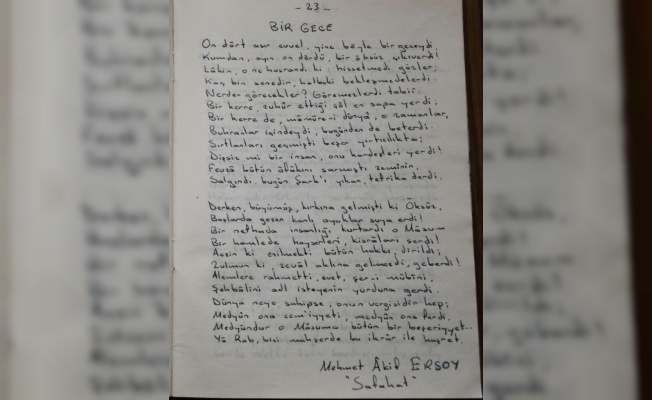 - 23 -
BİR GECE
On dört asır evvel, yine böyle bir geceydi,
Kumdan, ayın on dördü, bir öksüz çıkıverdi!
Lâkin, o ne hüsrandı ki: hissetmedi gözler,
Kaç bin senedir, halbuki bekleşmedelerdi.
Nerden görecekler? Göremezlerdi tabiî:
Bir kerre, zuhûr ettiği çöl en sapa yerdi;
Bir kerre de, mâmûre-i dünyâ, o zamanlar,
Buhranlar içindeydi, bugünden de beterdi.
Sırtlanları geçmişti beşer yırtıcılıkta;
Dişsiz mi bir insan, onu kardeşleri yerdi!
Fevzâ bütün âfâkını sarmıştı zeminin,
Salgındı, bugün Şark'ı yıkan, tefrika derdi.
Derken, büyümüş, kırkına gelmişti ki Öksüz,
Başlarda gezen kanlı ayaklar suya erdi!
Bir nefhada insanlığı kurtardı o Mâsum
Bir hamlede kayserleri, kisrâları serdi!
Aczin ki ezilmekti bütün hakkı, dirildi;
Zulmün ki, zevâl aklına gelmezdi, geberdi!
Âlemlere rahmetti, evet, şer'-i mübîni,
Şehbâlini adl isteyenin yurduna gerdi.
Dünya neye sahipse, onun vergisidir hep;
Medyûn ona cem'iyyeti, medyûn ona ferdi.
Medyûndur o Mâsuma bütün bir beşeriyyet..
Yâ Rab, bizi mahşerde bu ikrâr ile haşret.
Mehmet Âkif ERSOY
"Safahat"